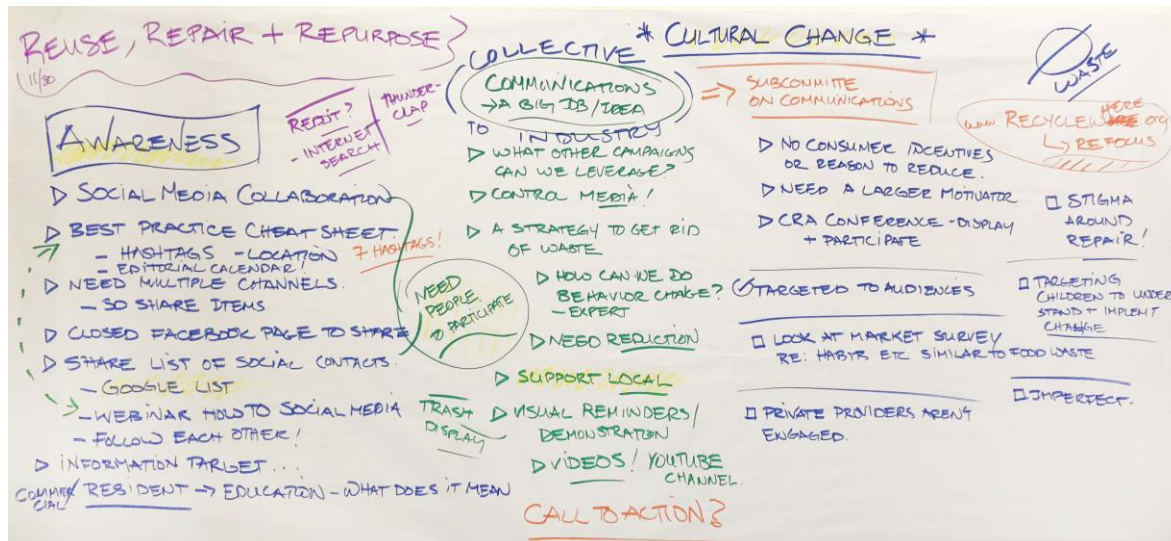 REUSE, REPAIR + REPURPOSE}
11/30
AWARENESS
REDIT?
- INTERNET
SEARCH
THUNDER-
CLAP
▷ SOCIAL MEDIA COLLABORATION
▷ BEST PRACTICE CHEAT SHEET.
- HASHTAGS - LOCATION
7 HASHTAGS!
- EDITORIAL CALENDAR!
▷ NEED MULTIPLE CHANNELS.
- SO SHARE ITEMS
▷ CLOSED FACEBOOK PAGE TO SHARE
▷ SHARE LIST OF SOCIAL CONTACTS.
- GOOGLE LIST
- WEBINAR HOW TO SOCIAL MEDIA
- FOLLOW EACH OTHER!
▷ INFORMATION TARGET...
COMMER
CIAL/ RESIDENT → EDUCATION - WHAT DOES IT MEAN
NEED
PEOPLE
TO PARTICIPATE
TRASH
DISPLAY
COLLECTIVE
COMMUNICATIONS
→ A BIG JOB/IDEA
TO INDUSTRY
▷ WHAT OTHER CAMPAIGNS
CAN WE LEVERAGE?
▷ CONTROL MEDIA!
▷ A STRATEGY TO GET RID
OF WASTE
▷ HOW CAN WE DO
BEHAVIOR CHANGE?
- EXPERT
▷ NEED REDUCTION
▷ SUPPORT LOCAL
▷ VISUAL REMINDERS/
DEMONSTRATION
▷ VIDEOS! YOUTUBE
CHANNEL.
CALL TO ACTION}
* CULTURAL CHANGE *
⇒ SUBCOMMITE
ON COMMUNICATIONS
▷ NO CONSUMER INCENTIVES
OR REASON TO REDUCE.
▷ NEED A LARGER MOTIVATOR
▷ CRA CONFERENCE - DISPLAY
+ PARTICIPATE
TARGETED TO AUDIENCES
□ LOOK AT MARKET SURVEY
RE: HABITS ETC SIMILAR TO FOOD WASTE
□ PRIVATE PROVIDERS AREN'T
ENGAGED.
Ø WASTE
HERE
www.RECYCLE .org
↳ REFOCUS
□ STIGMA
AROUND
REPAIR!
□ TARGETING
CHILDREN TO UNDER
STAND + IMPLEMT
CHANGE
□ IMPERFECT.